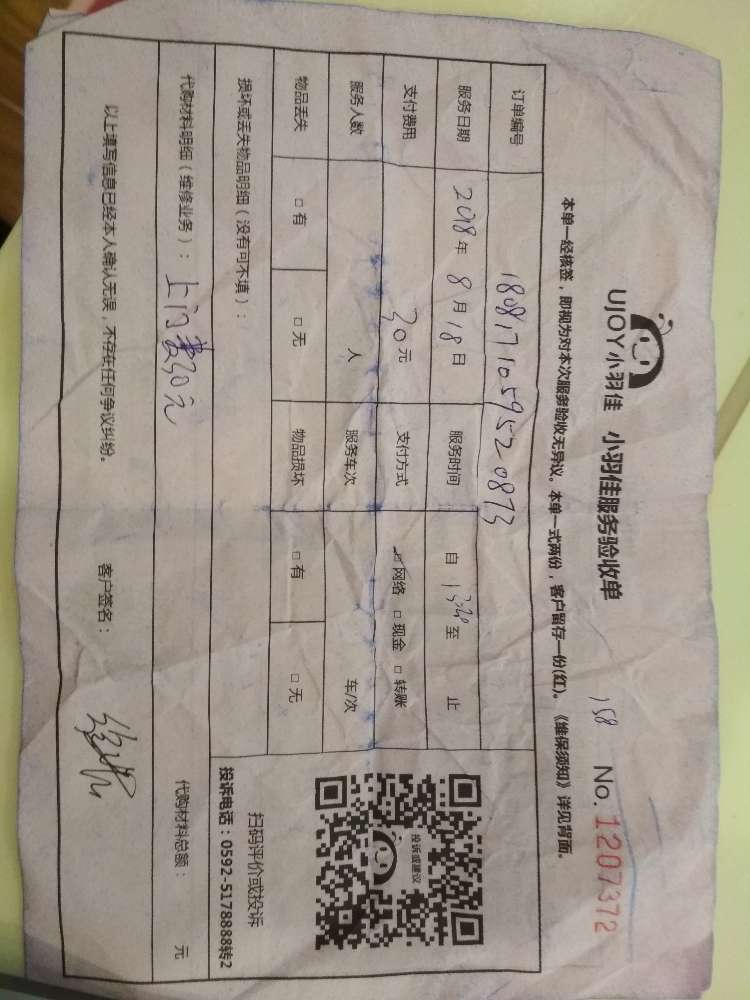 UJOY小羽佳 小羽佳服务验收单 158 No. 1207372
本单一经核签，即视为对本次服务验收无异议。本单一式两份，客户留存一份(红)。《维保须知》详见背面。
订单编号 1808171059520873
服务日期 2018年 8月 18日 服务时间 自 至 止
支付费用 30元 支付方式 □网络 □现金 □转账
服务人数 人 服务车次 车/次
物品丢失 □有 □无 物品损坏 □有 □无
损坏或丢失物品明细（没有可不填）：
投诉或建议
扫码评价或投诉
投诉电话：0592-5178888转2
代购材料明细（维修业务）：上门费30元 代购材料总额： 元
以上填写信息已经本人确认无误，不存在任何争议纠纷。 客户签名：